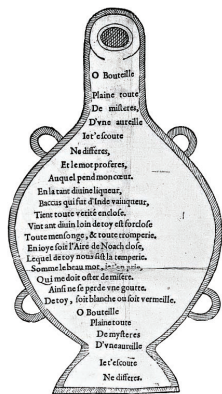 O Bouteille
Plaine toute
De misteres,
D'vne aureille
Iet'escoute
Ne differes,
Et le mot proferes,
Auquel pend mon cœur.
En la tant diuine liqueur,
Baccus qui fut d'Inde vainqueur,
Tient toute verité enclose.
Vint ant diuin loin de toy est forclose
Toute mensonge, & toute tromperie.
En ioye soit l'Aire de Noach close,
Lequel de toy nous fist la temperie.
Somme le beau mot, ie t'en prie,
Qui me doit oster de misere.
Ainsi ne se perde vne goutte.
De toy, soit blanche ou soit vermeille.
O Bouteille
Plaine toute
De mysteres
D'vne aureille
Iet'escoute
Ne differes.